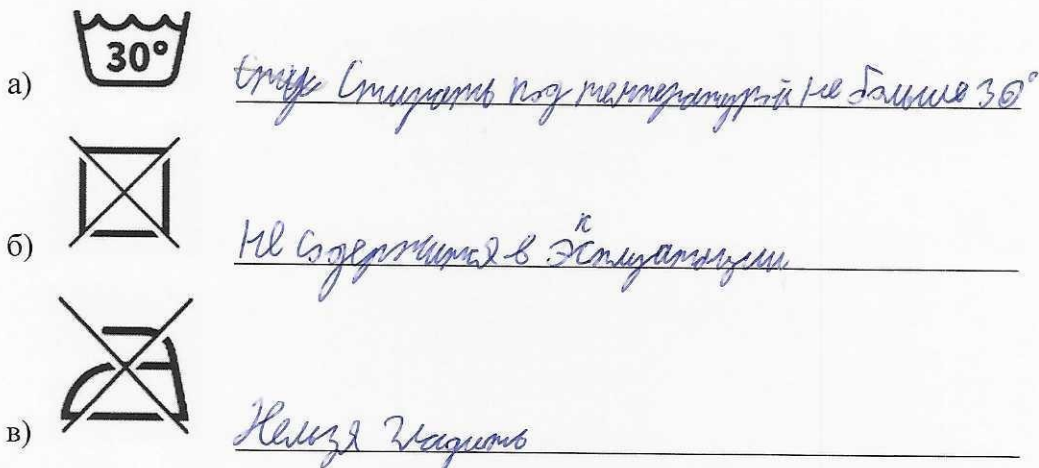 30°
а) Стирать под температурой не больше 30°
б) Не содержится в эксплуатации
в) Нельзя гладить